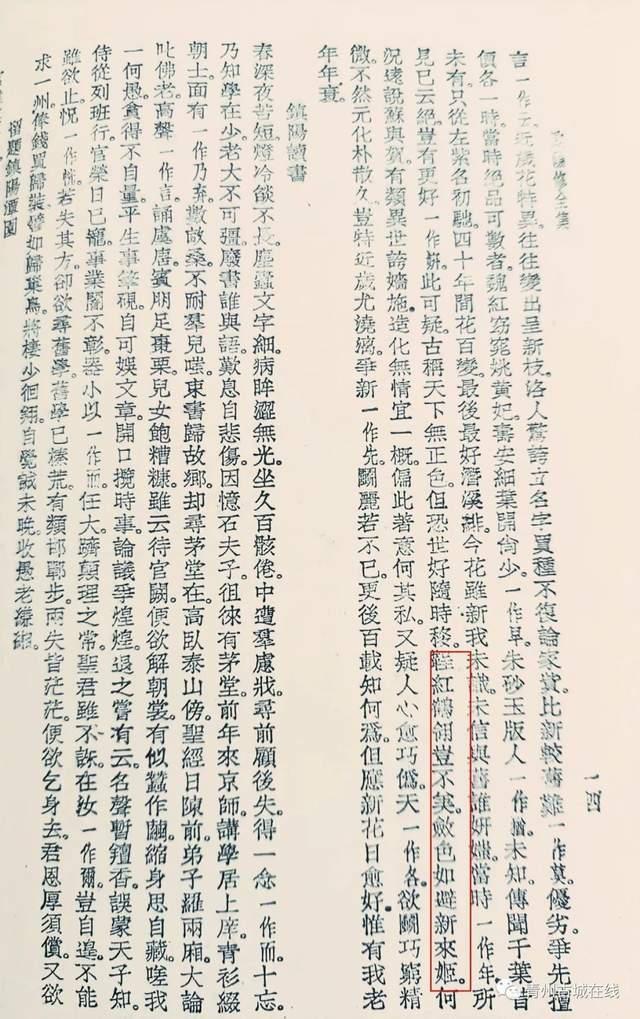 一四
言一作云。近歲花特異。往往變出呈新枝。洛人驚誇立名字。買種不復論家貲。比新較舊難一作莫。優劣。爭先擅
價各一時。當時絕品可數者。魏紅窈窕姚黃妃。壽安細葉開尚少。一作早。朱砂玉版人一作猶。未知。傳聞千葉昔
未有。只從左紫名初馳。四十年間花百變。最後最好潛溪緋。今花雖新我未識。未信與舊誰妍媸。當時一作年。所
見已云絕。豈有更好一作妍。此可疑。古稱天下無正色。但恐世好隨時移。鞓紅鶴翎豈不美。斂色如避新來姬。何
況遠說蘇與賀。有類異世誇嬙施。造化無情宜一概。偏此著意何其私。又疑人心愈巧偽。天一作各。欲鬬巧窮精
微。不然元化朴散久。豈特近歲尤澆漓。爭新一作先。鬬麗若不已。更後百載知何為。但應新花日愈好。惟有我老
年年衰。
鎮陽讀書
春深夜苦短。燈冷燄不長。塵蠹文字細。病眸澀無光。坐久百骸倦。中遭羣慮戕。尋前顧後失。得一念一作而。十忘。
乃知學在少。老大不可彊。廢書誰與語。歎息自悲傷。因憶石夫子。徂徠有茅堂。前年來京師。講學居上庠。青衫綴
朝士。面有一作乃弃。數畝桑。不耐羣兒嗤。束書歸故鄉。却尋茅堂在。高臥泰山傍。聖經日陳前。弟子羅兩廂。大論
叱佛老。高聲一作言。誦虞唐。賓朋足棗栗。兒女飽糟糠。雖云待官闕。便欲解朝裳。有似蠶作繭。縮身思自藏。嗟我
一何愚。貪得不自量。平生事筆硯。自可娛文章。開口攬時事。論議爭煌煌。退之嘗有云。名聲暫羶香。誤蒙天子知。
侍從列班行。官榮日已寵。事業闇不彰。器小以一作而。任大。躋顛理之常。聖君雖不誅。在汝一作爾。豈自遑。不能
雖欲止。怳一作恍。若失其方。卻欲尋舊學。舊學已榛荒。有類邯鄲步。兩失皆茫茫。便欲乞身去。君恩厚須償。又欲
求一州。俸錢買歸裝。譬如歸巢鳥。將棲少徊翔。自覺誠未晚。收愚老縑緗。
留題鎮陽潭園
青州古城在线